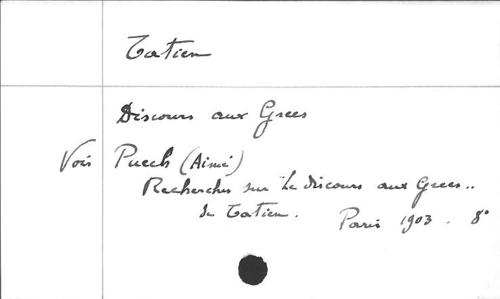 Tatien
Discours aux Grecs
Voir Puech (Aimé)
Recherches sur "Le discours aux Grecs..
de Tatien. Paris 1903. 8°